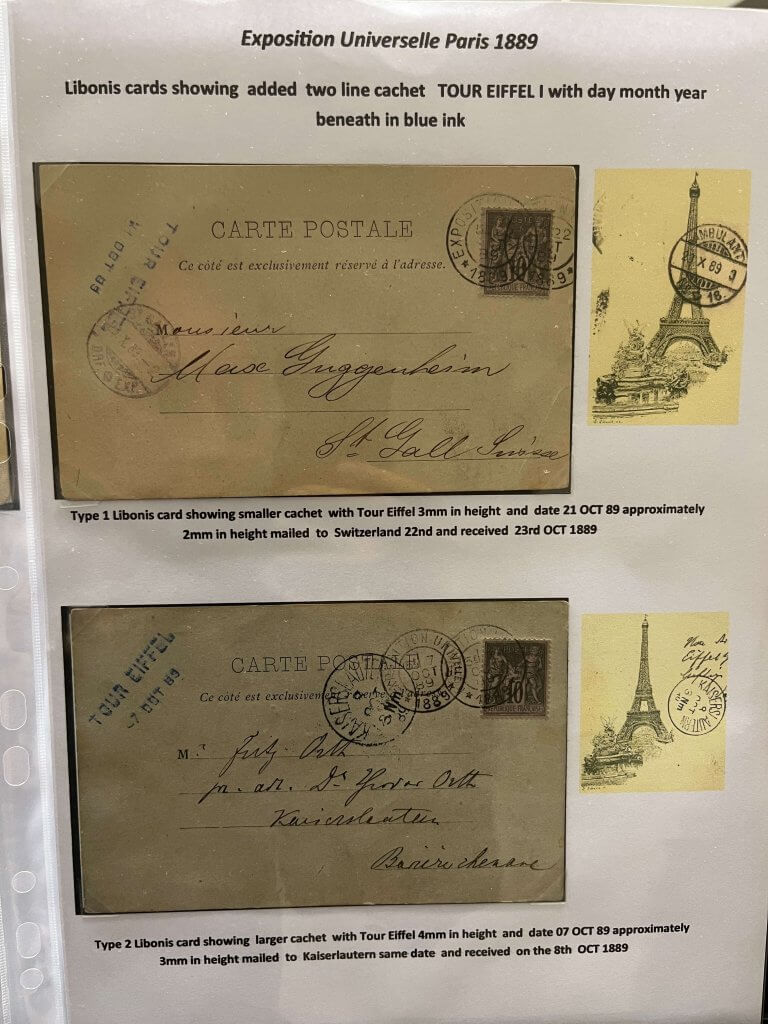 Exposition Universelle Paris 1889
Libonis cards showing added two line cachet TOUR EIFFEL I with day month year
beneath in blue ink
TOUR EIFFEL
21 OCT 89
CARTE POSTALE
Ce côté est exclusivement réservé à l'adresse.
1889 1889
POSTE
10
Monsieur
Max Guggenheim
St Gall Suisse
AMBULANT
X 89
Type 1 Libonis card showing smaller cachet with Tour Eiffel 3mm in height and date 21 OCT 89 approximately
2mm in height mailed to Switzerland 22nd and received 23rd OCT 1889
TOUR EIFFEL
-7 OCT 89
CARTE POSTALE
Ce côté est exclusivement réservé à l'adresse.
1889
10
REPUBLIQUE FRANÇAISE
KAISERSLAUTERN
M. Fritz Orth
pr. adr. Dr Orth
Kaiserslautern
KAISERSLAUTERN
Type 2 Libonis card showing larger cachet with Tour Eiffel 4mm in height and date 07 OCT 89 approximately
3mm in height mailed to Kaiserlautern same date and received on the 8th OCT 1889